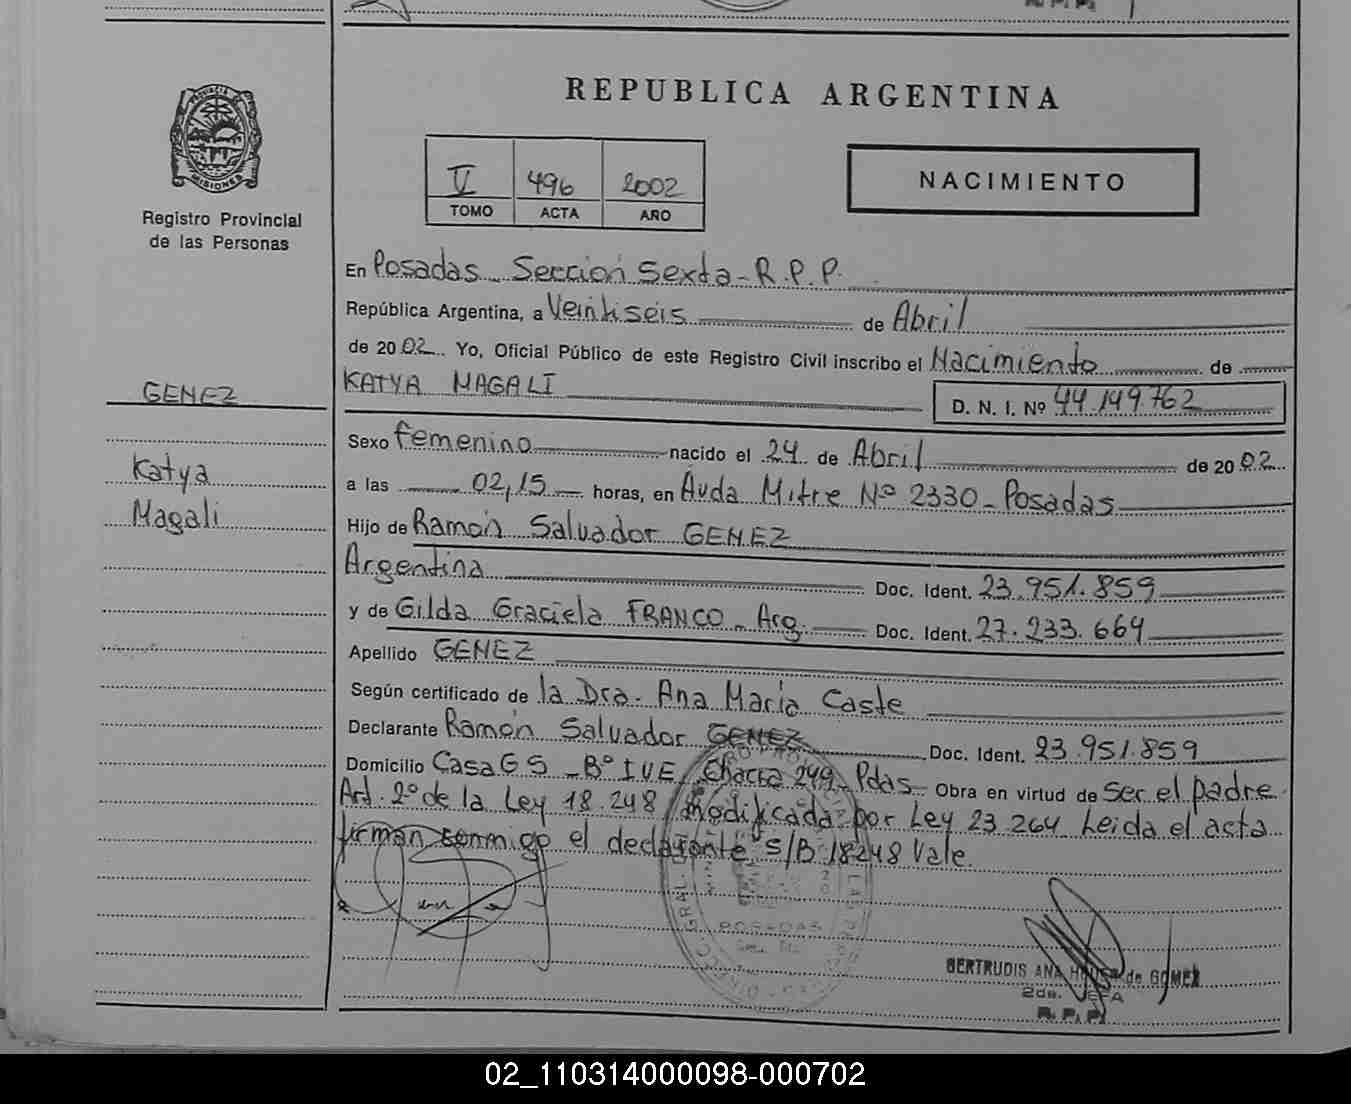 REPUBLICA ARGENTINA
PROVINCIA DE
MISIONES
Registro Provincial
de las Personas
V 496 2002
TOMO ACTA AÑO
NACIMIENTO
En Posadas Sección Sexta - R.P.P.
República Argentina, a Veintiseis de Abril
de 2002. Yo, Oficial Público de este Registro Civil inscribo el Nacimiento de
KATYA MAGALI
D. N. I. Nº 44.149.762
GENEZ
Katya
Magali
Sexo femenino nacido el 24 de Abril de 2002
a las 02,15 horas, en Avda Mitre Nº 2330 - Posadas
Hijo de Ramón Salvador GENEZ
Argentina Doc. Ident. 23.951.859
y de Gilda Graciela FRANCO - Arg. Doc. Ident. 27.233.664
Apellido GENEZ
Según certificado de la Dra. Ana María Caste
Declarante Ramón Salvador GENEZ Doc. Ident. 23.951.859
Domicilio Casa G S - Bº I VE, Chacra 249 - Pdas - Obra en virtud de ser el padre
Art. 2º de la Ley 18.248 modificada por Ley 23.264 Leida el acta
firman conmigo el declarante S/B 18248 Vale.
POSADAS
GERTRUDIS ANA de GOMEZ
2da. JEFA
R. P. P.
02_110314000098-000702